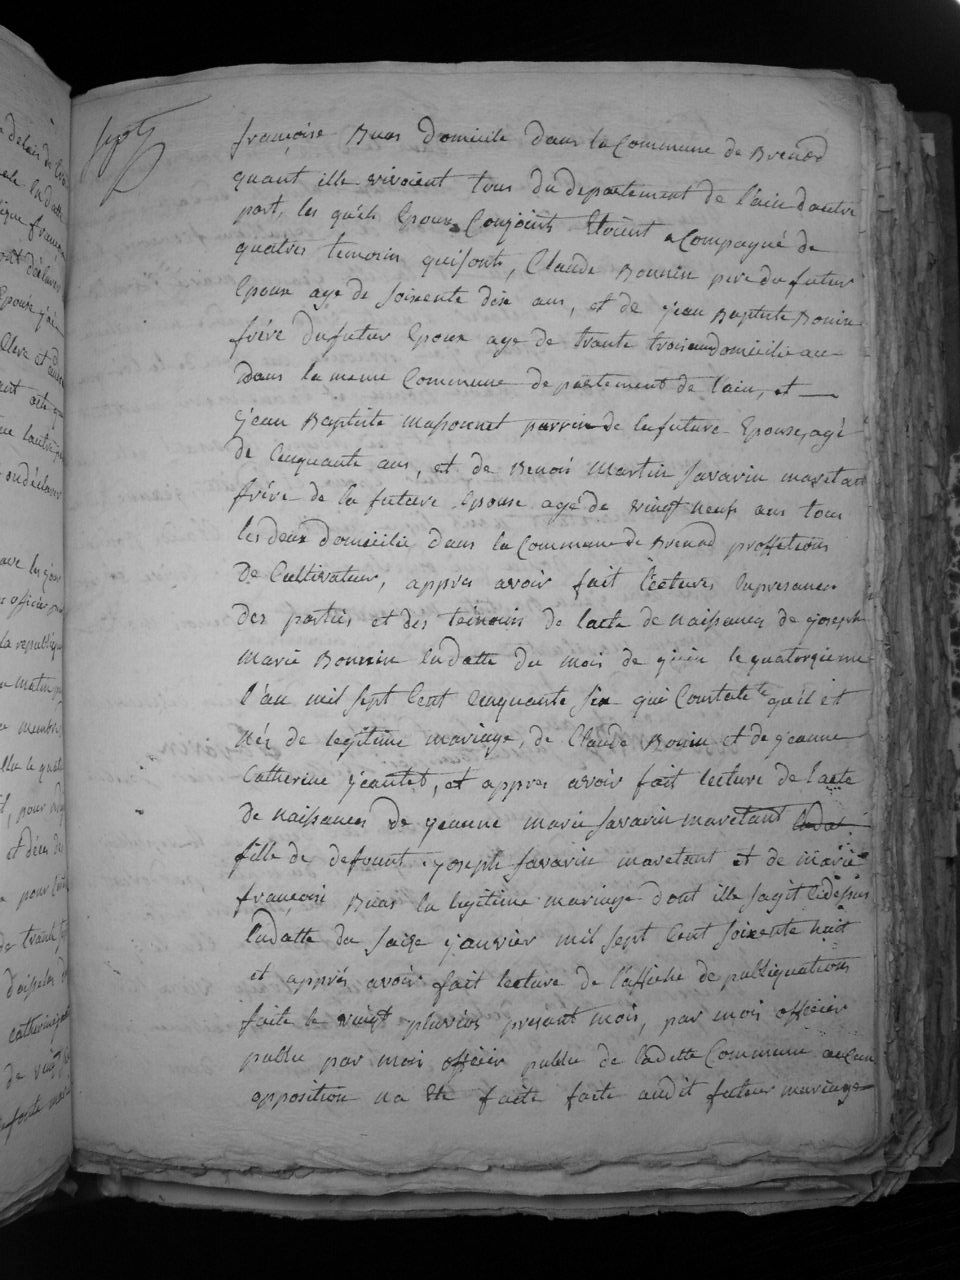 françoise Buas domicile dans la Commune de Brenod
quant ille vivoient tous du departement de l'ain dautre
part, les quéls Epoux Conjoints Etoient acompagné de
quatres temoin quisonts, Claude Bonnin pere du futur
Epoux age de soixente dix ans, et de jean Baptiste Bonin
frére dufutur Epoux age de trante trois
dans la meme Commune departement de lain, et
jean Baptiste Massonnet parrin de lafuture Epouse, agé
de Cenquante ans, et de Benoi Martin Savarin maretan
frére de la future Epouse agé de vingt neufs ans tous
les deux domicilié dans la Commune de Brenod proffetions
De Cultivateur, appres avoir fait lectures
des partiés et des temoins de lacte de naissance de joseph
marie Bonnin Endatte du mois de juin le quatorzieme
l'an mil sept Cent Cenquante six qui Constate qu'il et
Née de legitime mariage, de Claude Bonin et de jeanne
Catherine, et appres avoir fait lecture de lacte
de naissances de jeanne marie Savarin maretant
fille de deffunt joseph Savarin maretant et de marie
françoisi Buas la legitime mariage dont ille sagit
Endatte du saize janvier mil sept Cent soixente huit
et apprés avoir fait lecture de l'affiche de publiquations
faite le vingt pluviôs presant mois, par mois officier
publu par mois officier publu de laditte Commune aucun
opposition na Eté faite faite audit futur mariage